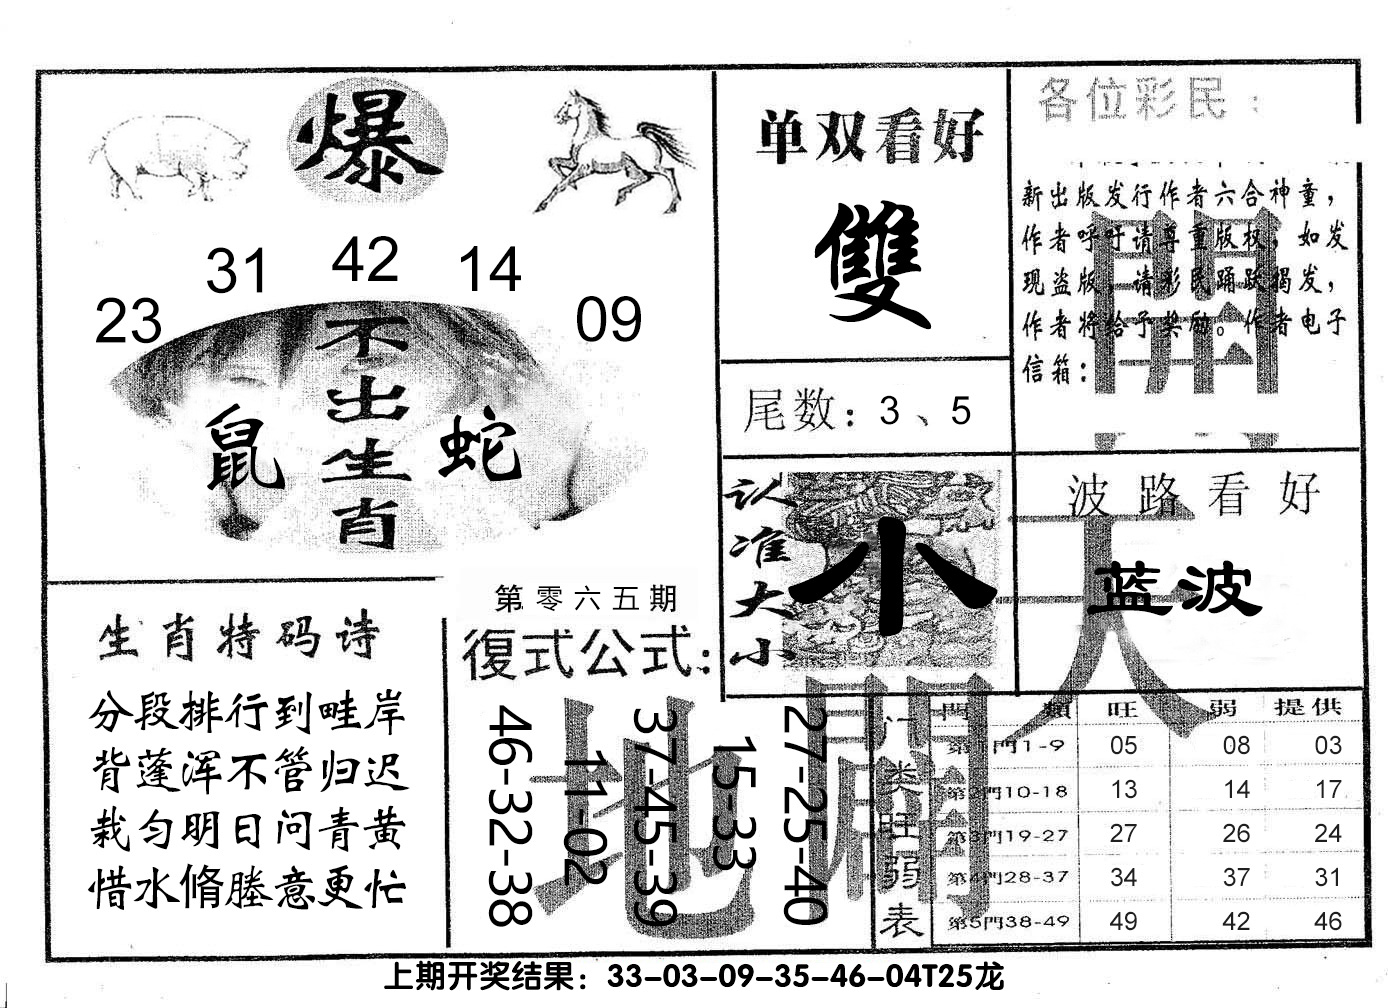 爆
31 42 14
23 09
不出生肖
鼠 蛇
单双看好
雙
尾数：3、5
各位彩民：
新出版发行作者六合神童，
作者呼吁请尊重版权，如发
现盗版，请彩民踊跃揭发，
作者将给予奖励。作者电子
信箱：
認准大小
小
波路看好
蓝波
天
開
地
開
生肖特码诗
分段排行到畦岸
背蓬浑不管归迟
栽匀明日问青黄
惜水脩塍意更忙
第零六五期
復式公式：
46-32-38
11-02
37-45-39
15-33
27-25-40
门类旺弱表
門類 旺 弱 提供
第1門1-9 05 08 03
第2門10-18 13 14 17
第3門19-27 27 26 24
第4門28-37 34 37 31
第5門38-49 49 42 46
上期开奖结果：33-03-09-35-46-04T25龙